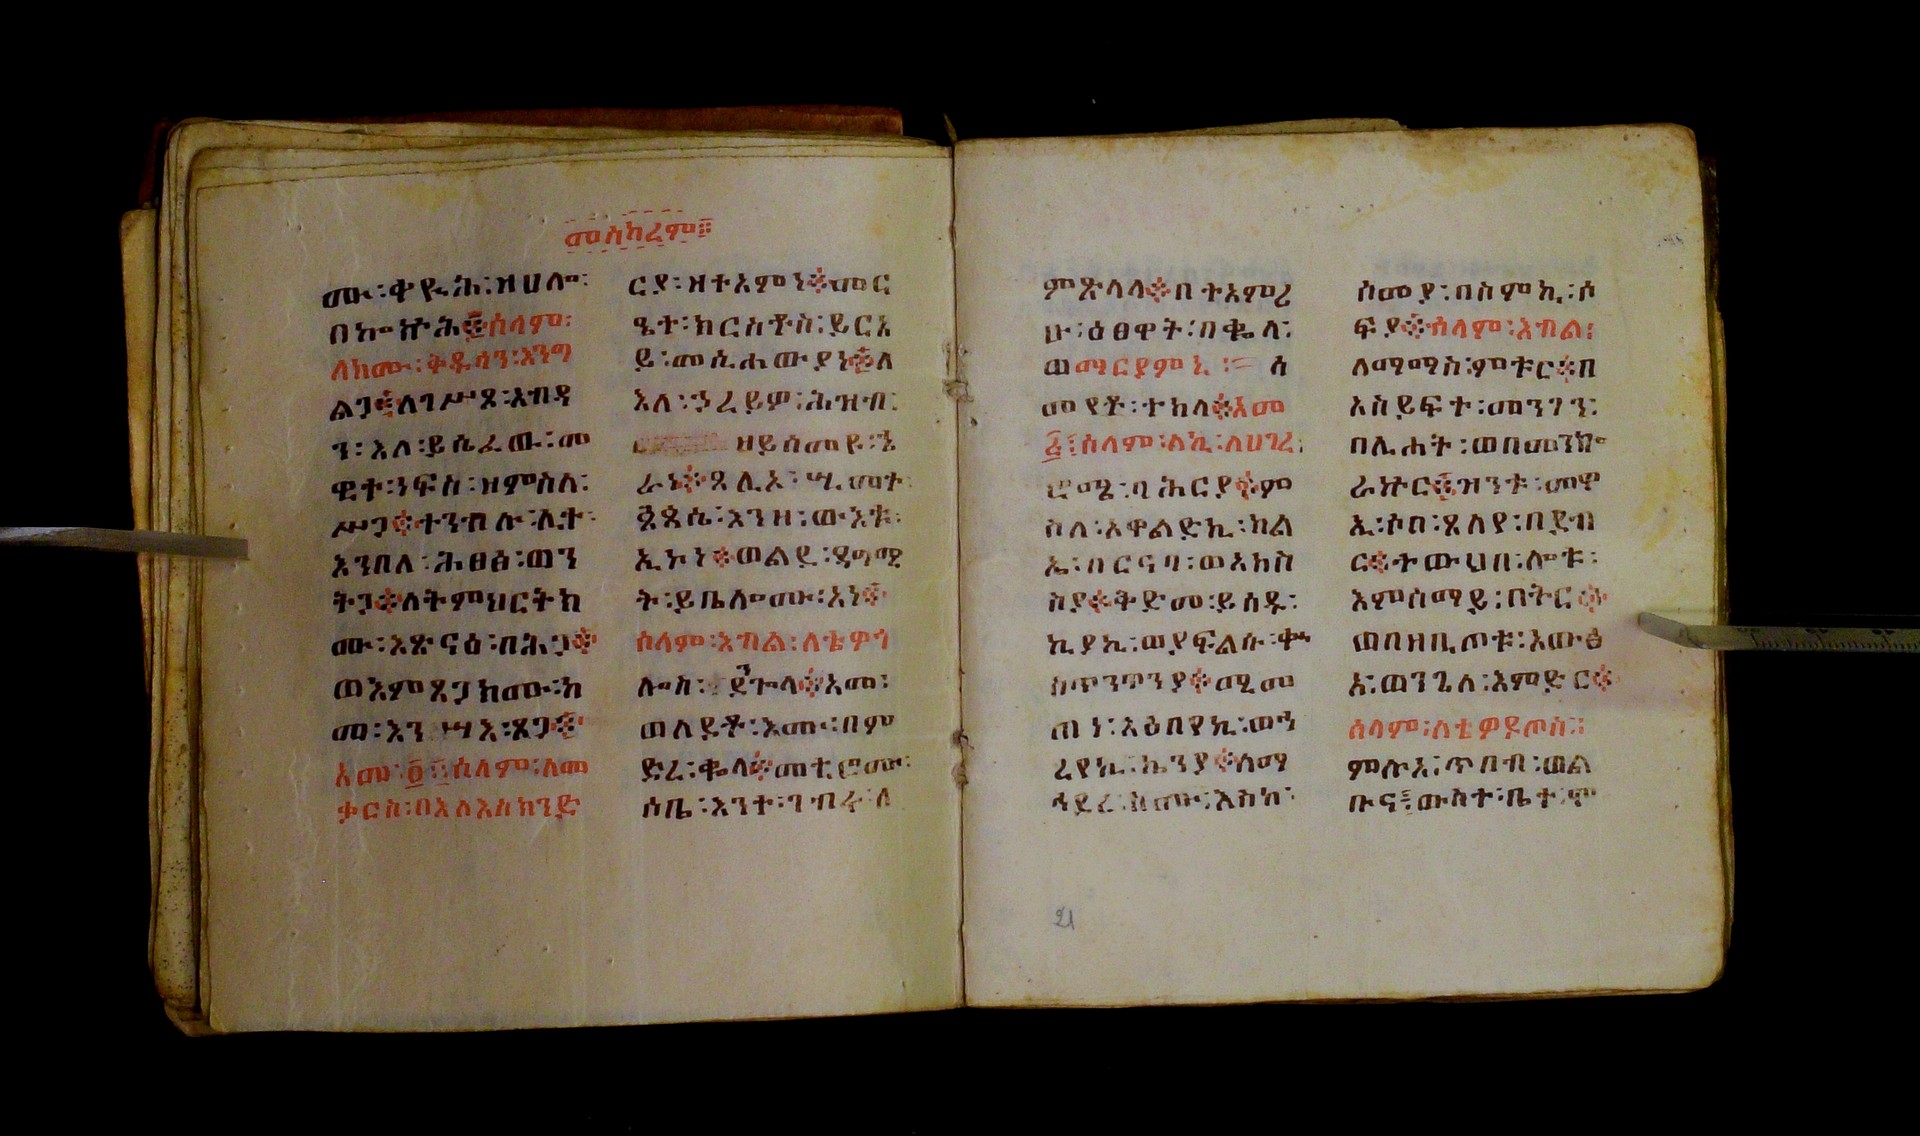 መስካረም፨
ሙ፡ቀዪሕ፡ዘሀሎ፡
በኵሕ፨ሰላም፡
ለክሙ፡ቅዱሳን፡እንግ
ልጋ፨ለገሥጾ፡አብዳ
ን፡እለ፡ይሴፈዉ፡መ
ዊተ፡ነፍስ፡ዘምስለ፡
ሥጋ፨ተንብሉ፡ሊተ፡
እንበለ፡ሕፀፅ፡ወን
ትጋ፨ለትምህርትክ
ሙ፡አጽናዕ፡በሕጋ፨
ወእምጸጋክሙ፡ከ
መ፡እንሣእ፡ጸጋ፨
እመ፡፩፡ሰላም፡ለመ
ቃርስ፡በእለእስክንድ
ርያ፡ዘተአምነ፨መር
ዔተ፡ክርስቶስ፡ይርአ
ይ፡መሲሐውያነ፨ለ
እለ፡ኃረይዎ፡ሕዝብ፡
ዘይሰመይ፡ኄ
ራነ፨ጸሊኦ፡ሢመተ፡
ጳጳሴ፡እንዘ፡ውእቱ፡
ኢኮነ፨ወልደ፡ዳግሚ
ት፡ይቤሎሙ፡አነ፨
ሰላም፡እብል፡ለቴዎጎ
ሎስ፡ደጐላ፨አመ፡
ወለደቶ፡እሙ፡በም
ድረ፡ቈላ፨መቲሮሙ፡
ሶቤ፡እንተ፡ገብሩ፡ለ
ምጽላላ፨በተአምረ
ሁ፡ዕፀዋት፡በቈለ፡
ወማርያምኒ፡ሰ
መየቶ፡ተከላ፨እመ
፩፡ሰላም፡ለኪ፡ለሀገረ፡
ሮሜ፡ባሕርያ፨ም
ስለ፡አዋልድኪ፡ክል
ኤ፡በርናባ፡ወአክስ
ስያ፨ቅድመ፡ይሰዱ፡
ኪያኪ፡ወያፍልሱ፡ቍ
ስጥንጥንያ፨ሚመ
ጠነ፡አዕበየኪ፡ወኀ
ረየኪ፡ኬንያ፨ሰማ
ኀደረ፡ከሙ፡እስከ፡
ሰመያ፡በስምኪ፡ሶ
ፍያ፨ሰላም፡እብል፡
ለማማስ፡ምቱር፨በ
አስይፍተ፡መንገን፡
በሊሐት፡ወበመንኰ
ራኵር፨ዝንቱ፡መዋ
ኢ፡ሶበ፡ጸለየ፡በደብ
ር፨ተውህበ፡ሎቱ፡
እምሰማይ፡በትር፨
ወበዘቢጦቱ፡አውፅ
አ፡ወንጌለ፡እምድር፨
ሰላም፡ለቴዎዶጦስ፡
ምሉእ፡ጥበብ፡ወል
ቡና፡ውስተ፡ቤተ፡ሞ
21